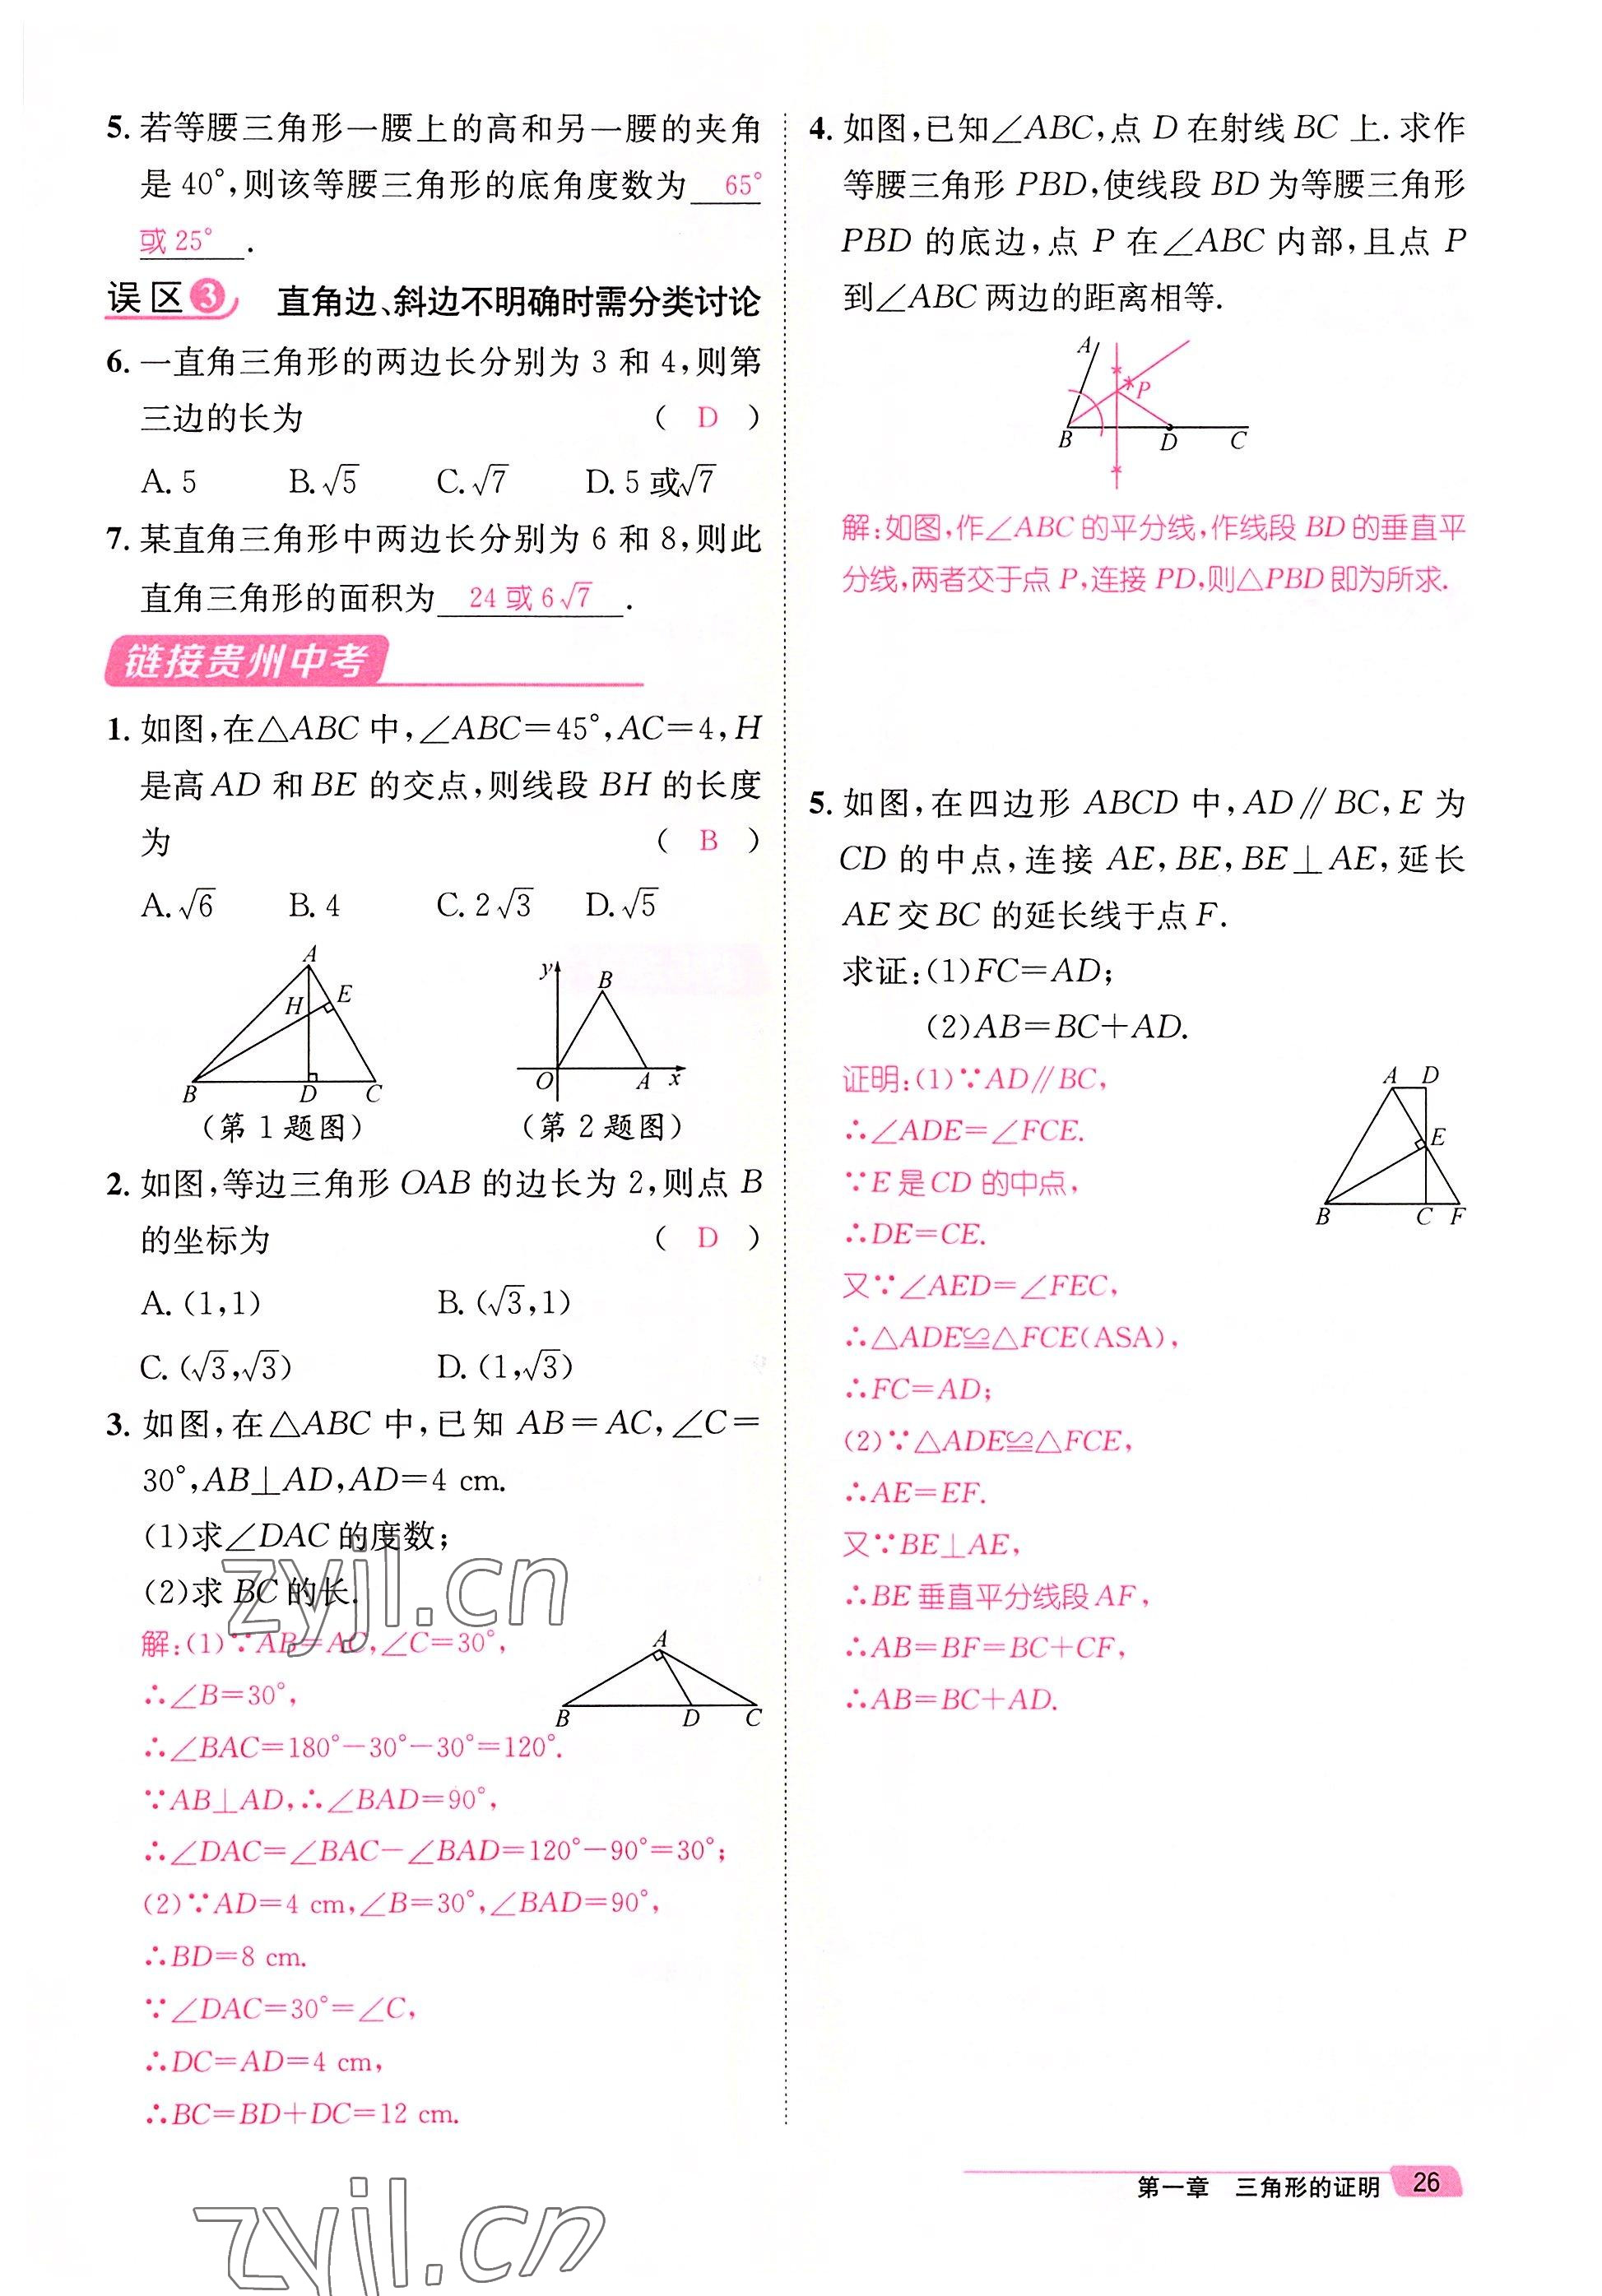 5. 若等腰三角形一腰上的高和另一腰的夹角
是 40°,则该等腰三角形的底角度数为 65°
或 25° .
误区3 直角边、斜边不明确时需分类讨论
6. 一直角三角形的两边长分别为 3 和 4,则第
三边的长为 ( D )
A. 5 B. √5 C. √7 D. 5 或√7
7. 某直角三角形中两边长分别为 6 和 8,则此
直角三角形的面积为 24 或 6√7 .
链接贵州中考
1. 如图,在△ABC 中,∠ABC=45°,AC=4,H
是高 AD 和 BE 的交点,则线段 BH 的长度
为 ( B )
A. √6 B. 4 C. 2√3 D. √5
A
H
E
B
D
C
(第 1 题图)
y
B
O
A
x
(第 2 题图)
2. 如图,等边三角形 OAB 的边长为 2,则点 B
的坐标为 ( D )
A. (1,1) B. (√3,1)
C. (√3,√3) D. (1,√3)
3. 如图,在△ABC 中,已知 AB=AC,∠C=
30°,AB⊥AD,AD=4 cm.
(1)求∠DAC 的度数;
(2)求 BC 的长.
解:(1)∵AB=AC,∠C=30°,
∴∠B=30°,
∴∠BAC=180°-30°-30°=120°.
∵AB⊥AD,∴∠BAD=90°,
∴∠DAC=∠BAC-∠BAD=120°-90°=30°;
(2)∵AD=4 cm,∠B=30°,∠BAD=90°,
∴BD=8 cm.
∵∠DAC=30°=∠C,
∴DC=AD=4 cm,
∴BC=BD+DC=12 cm.
A
B
D
C
zyjl.cn
zyjl.cn
4. 如图,已知∠ABC,点 D 在射线 BC 上. 求作
等腰三角形 PBD,使线段 BD 为等腰三角形
PBD 的底边,点 P 在∠ABC 内部,且点 P
到∠ABC 两边的距离相等.
A
P
B
D
C
解:如图,作∠ABC 的平分线,作线段 BD 的垂直平
分线,两者交于点 P,连接 PD,则△PBD 即为所求.
5. 如图,在四边形 ABCD 中,AD∥BC,E 为
CD 的中点,连接 AE,BE,BE⊥AE,延长
AE 交 BC 的延长线于点 F.
求证:(1)FC=AD;
(2)AB=BC+AD.
证明:(1)∵AD∥BC,
∴∠ADE=∠FCE.
∵E 是 CD 的中点,
∴DE=CE.
又∵∠AED=∠FEC,
∴△ADE≌△FCE(ASA),
∴FC=AD;
(2)∵△ADE≌△FCE,
∴AE=EF.
又∵BE⊥AE,
∴BE 垂直平分线段 AF,
∴AB=BF=BC+CF,
∴AB=BC+AD.
A
D
E
B
C
F
第一章 三角形的证明 26